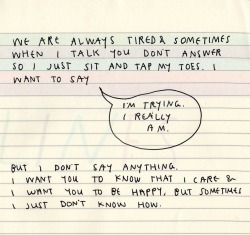 WE ARE ALWAYS TIRED & SOMETIMES
WHEN I TALK YOU DONT ANSWER
SO I JUST SIT AND TAP MY TOES. I
WANT TO SAY
I'M TRYING.
I REALLY
AM.
BUT I DON'T SAY ANYTHING.
I WANT YOU TO KNOW THAT I CARE &
I WANT YOU TO BE HAPPY, BUT SOMETIMES
I JUST DON'T KNOW HOW.